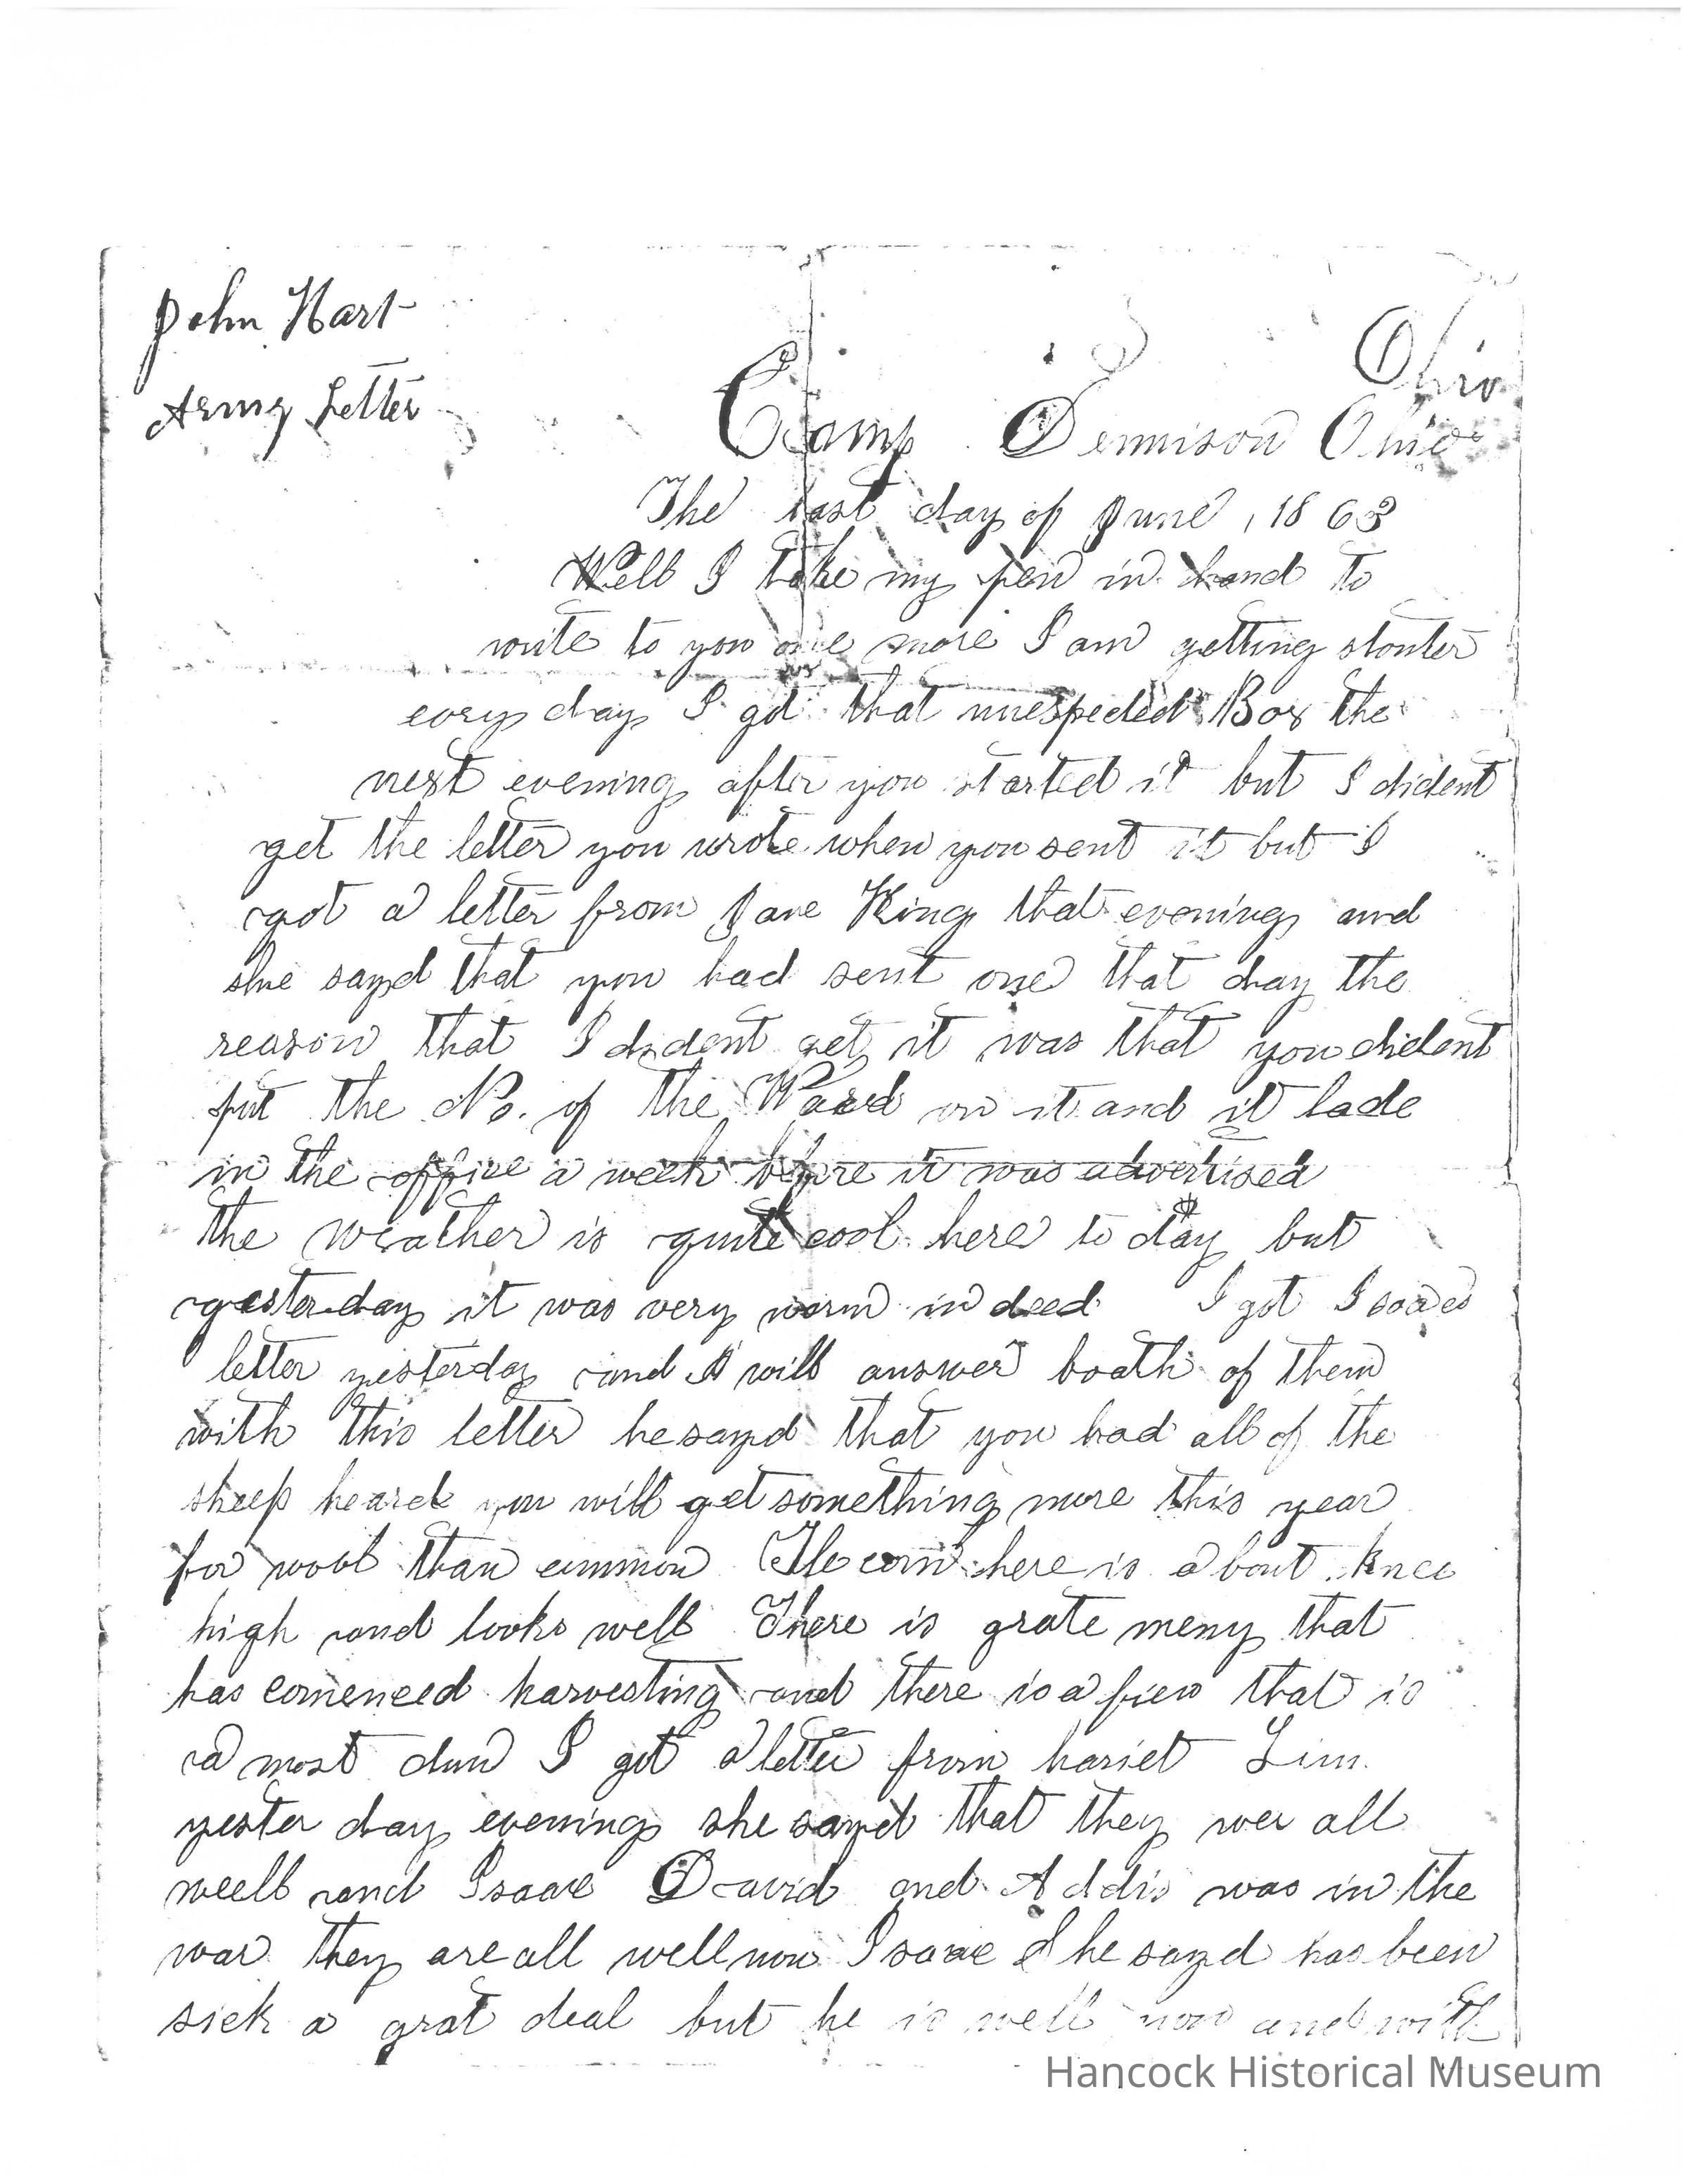 John Hart
Army Letter
Ohio
Camp Dennison Ohio
The last day of June, 1863
Well I take my pen in hand to
write to you one more I am getting stouter
evry day I got that unespected Box the
next evening after you started it but I dident
get the letter you wrote when you sent it but I
got a letter from Jane King that evening and
she sayd that you had sent one that day the
reason that I dident get it was that you dident
put the No. of the Ward on it and it lade
in the office a week before it was advertised
the weather is quite cool here to day but
yesterday it was very warm in deed I got Isaacs
letter yesterday and I will answer boath of them
with this letter he sayd that you had all of the
sheep heard you will get something more this year
for wool than common The corn here is about knee
high and looks well There is grate meny that
has comenced harvesting and there is a fiew that is
a most dun I got a letter from hariet Lim.
yester day evening she sayd that they wer all
weell and Isaac David and Addis was in the
war they are all well now Isaac She sayd has been
sick a grat deal but he is well now and with
Hancock Historical Museum